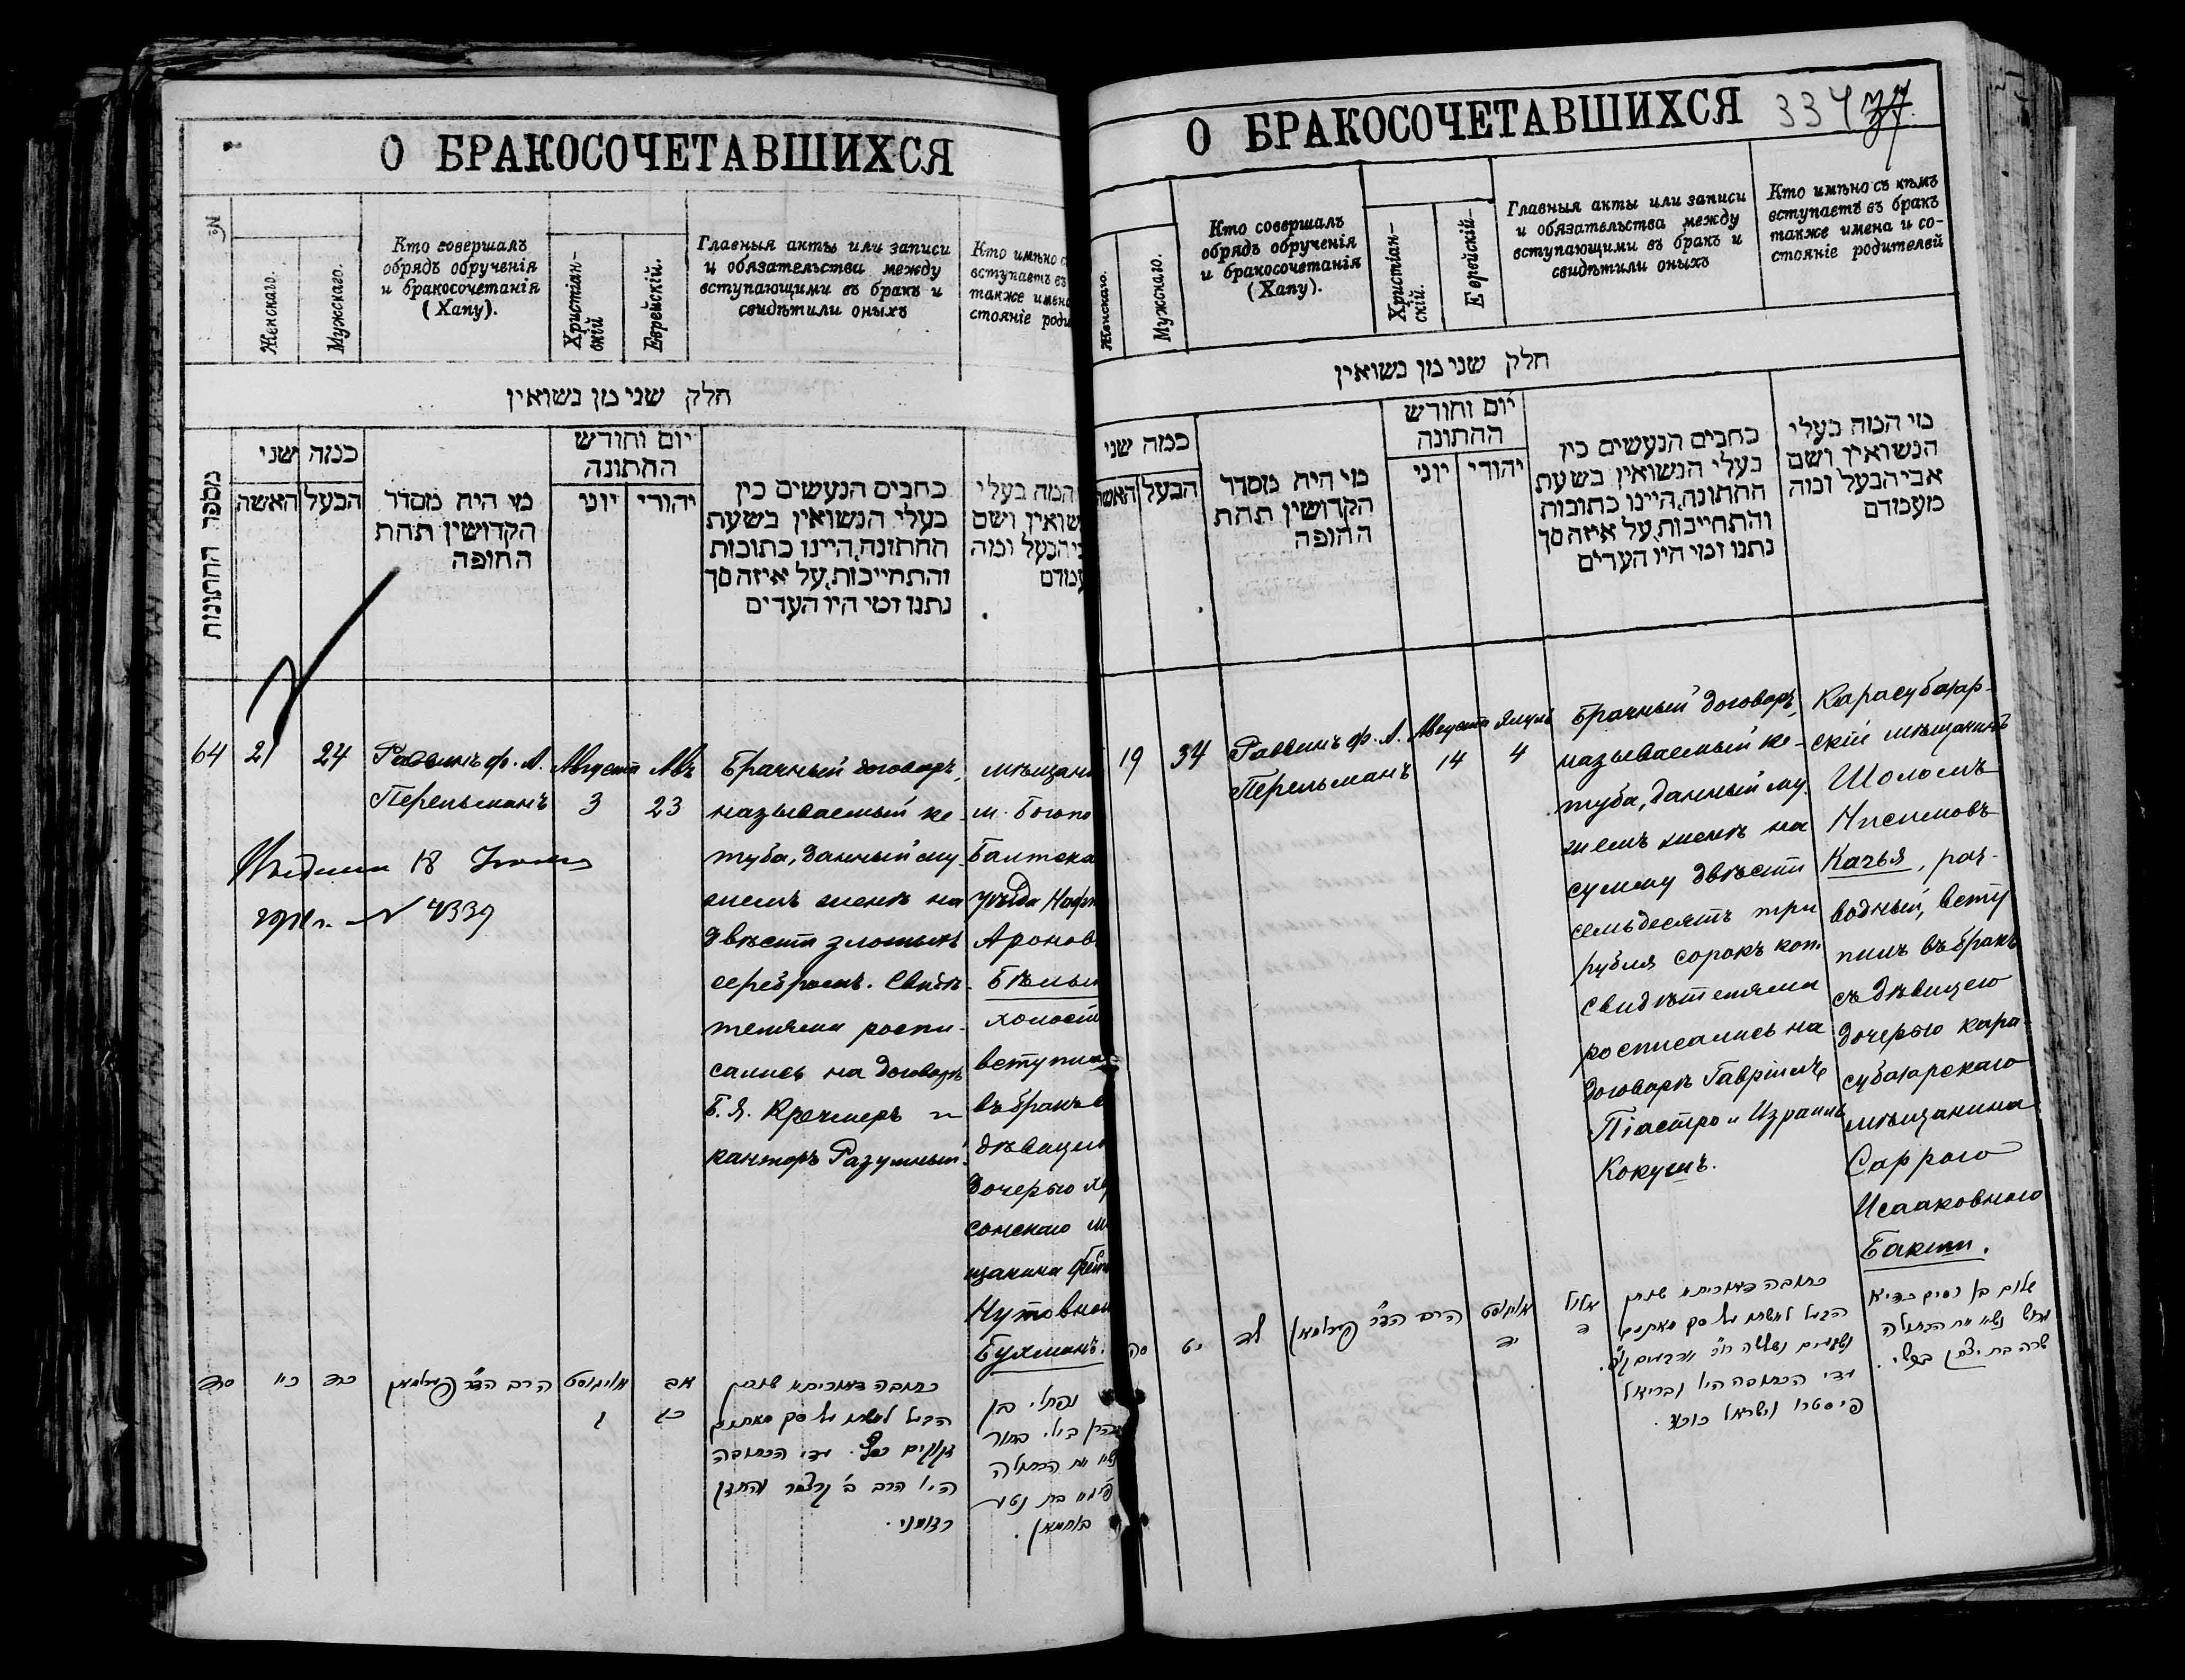 О БРАКОСОЧЕТАВШИХСЯ
№
Женскаго.
Мужскаго.
Кто совершалъ
обрядъ обрученія
и бракосочетанія
(Хапу).
Христіан-
скій
Еврейскій.
Главныя акты или записи
и обязательства между
вступающими въ бракъ и
свидѣтили оныхъ
Кто имѣно с
вступаетъ въ
также имена
стояніе роди
חלק שני מן נשואין
מספר החתונות
כמה שני
האשה
הבעל
מי היה מסדר
הקדושין תחת
החופה
יום וחודש
החתונה
יוני
יהודי
כתבים הנעשים בין
בעלי הנשואין בשעת
החתונה, היינו כתובות
והתחייבות, על איזה סך
נתנו ומי היו העדים
המה בעלי
שואין ושם
יהבעל ומה
עמדם
64
21
24
Раввинъ Ф. А.
Перельманъ
Августа
3
Авъ
23
Брачный договоръ,
называемый ке-
туба, данный му-
жемъ женѣ на
двѣсти злотыхъ
серебромъ. Свидѣ-
телями роспи-
сались на договорѣ
Б. Я. Кречмеръ и
канторъ Разумный.
мѣщани
м. Богопо
Балтска
уѣзда Нафт
Аронов
Бѣлы
холост
вступил
въ бракъ с
дѣвицею
дочерью хер
сонскаго м
щанина
Нутовной
Бухманъ.
18
№ 4339
סד
כא
כד
הרב הד״ר פערלמאן
אויגוסט
ג
אב
כג
כתובה דאורייתא שנתן
הבעל לאשתו על סך מאתים
זקוקים כסף. עדי הכתובה
היו הרב ב׳ קרצמר והחזן
רזומני.
נפתלי בן
אהרן בילי בחור
נשא את הבתולה
בת נטע
בוחמאן.
О БРАКОСОЧЕТАВШИХСЯ
334
37
Женскаго.
Мужскаго.
Кто совершалъ
обрядъ обрученія
и бракосочетанія
(Хапу).
Христіан-
скій.
Еврейскій-
Главныя акты или записи
и обязательства между
вступающими въ бракъ и
свидѣтили оныхъ
Кто имѣно съ кѣмъ
вступаетъ въ бракъ
также имена и со-
стояніе родителей
חלק שני מן נשואין
כמה שני
האשה
הבעל
מי היה מסדר
הקדושין תחת
החופה
יום וחודש
החתונה
יוני
יהודי
כתבים הנעשים בין
בעלי הנשואין בשעת
החתונה, היינו כתובות
והתחייבות, על איזה סך
נתנו ומי היו העדים
מי המה בעלי
הנשואין ושם
אביהבעל ומה
מעמדם
19
34
Раввинъ Ф. А.
Перельманъ
Августа
14
Элулъ
4
Брачный договоръ,
называемый ке-
туба, данный му-
жемъ женѣ на
сумму двѣсти
семьдесятъ три
рубля сорокъ коп.
Свидѣтелями
росписались на
договорѣ Гавріилъ
Піастро и Израиль
Кокушъ.
Карасубазар-
скій мѣщанинъ
Шоломъ
Нисимовъ
Качья, раз-
водный, всту
пилъ въ бракъ
съ дѣвицею
дочерью кара-
субазарскаго
мѣщанина
Саррою
Исааковною
Бакши.
סה
יט
לד
הרב הד״ר פערלמאן
אויגוסט
יד
אלול
ד
כתובה דאורייתא שנתן
הבעל לאשתו על סך מאתים
ושבעים ושלשה רו״כ וארבעים ק״פ.
עדי הכתובה היו גבריאל
פיסטרו וישראל כוכוש.
שלום בן נסים כדיא
גרוש נשא את הבתולה
שרה בת יצחק בקשי.